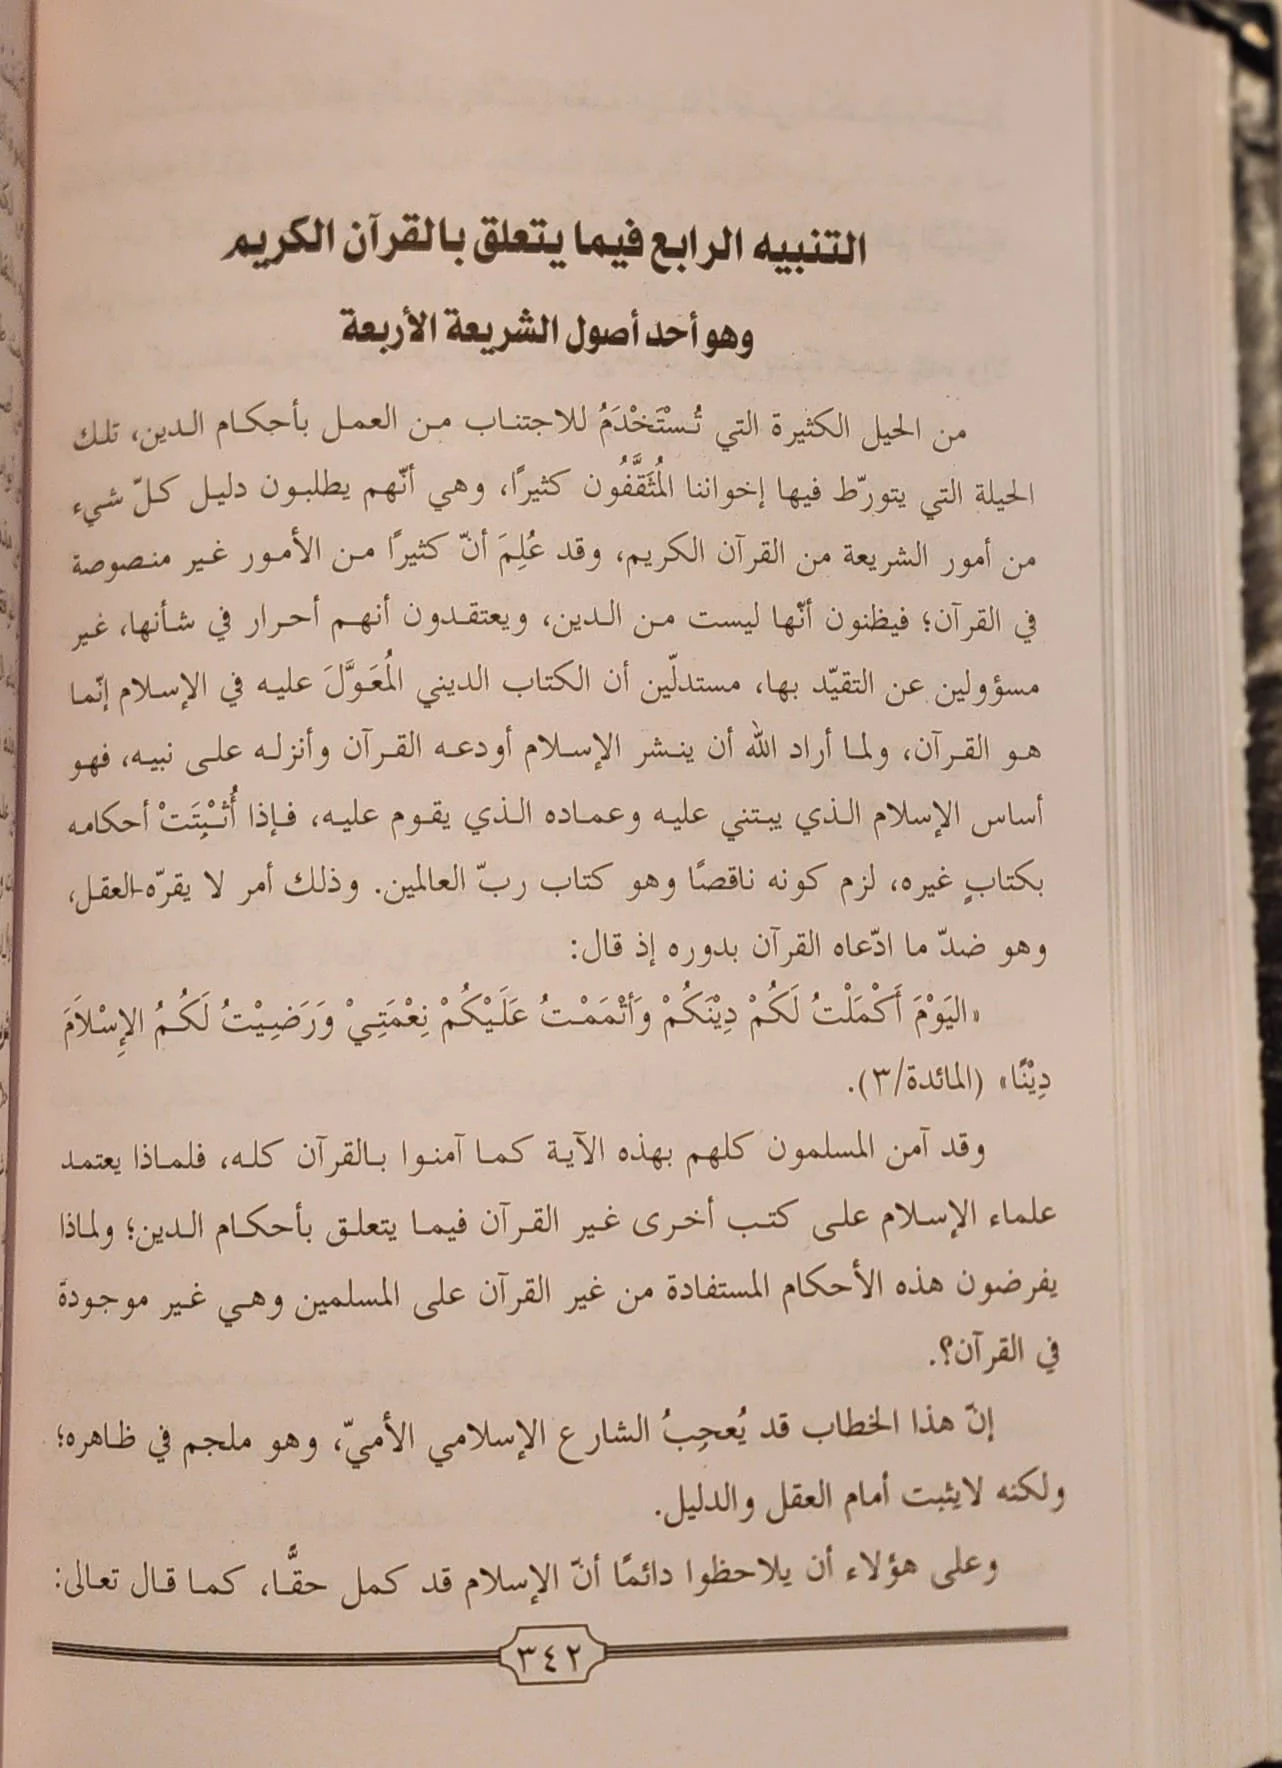 التنبيه الرابع فيما يتعلق بالقرآن الكريم
وهو أحد أصول الشريعة الأربعة
من الحيل الكثيرة التي تُسْتَخْدَمُ للاجتناب من العمل بأحكام الدين، تلك
الحيلة التي يتورّط فيها إخواننا المُثَقَّفُون كثيرًا، وهي أنّهم يطلبون دليل كلّ شيء
من أمور الشريعة من القرآن الكريم، وقد عُلِمَ أنّ كثيرًا من الأمور غير منصوصة
في القرآن؛ فيظنون أنّها ليست من الدين، ويعتقدون أنهم أحرار في شأنها، غير
مسؤولين عن التقيّد بها، مستدلّين أن الكتاب الديني المُعَوَّلَ عليه في الإسلام إنّما
هو القرآن، ولما أراد الله أن ينشر الإسلام أودعه القرآن وأنزله على نبيه، فهو
أساس الإسلام الذي يبتني عليه وعماده الذي يقوم عليه، فإذا أُثْبِتَتْ أحكامه
بكتابٍ غيره، لزم كونه ناقصًا وهو كتاب ربّ العالمين. وذلك أمر لا يقرّه العقل،
وهو ضدّ ما ادّعاه القرآن بدوره إذ قال:
«اليَوْمَ أَكْمَلْتُ لَكُمْ دِيْنَكُمْ وَأَتْمَمْتُ عَلَيْكُمْ نِعْمَتِيْ وَرَضِيْتُ لَكُمُ الإِسْلاَمَ
دِيْنًا» (المائدة/٣).
وقد آمن المسلمون كلهم بهذه الآية كما آمنوا بالقرآن كله، فلماذا يعتمد
علماء الإسلام على كتب أخرى غير القرآن فيما يتعلق بأحكام الدين؛ ولماذا
يفرضون هذه الأحكام المستفادة من غير القرآن على المسلمين وهي غير موجودة
في القرآن؟.
إنّ هذا الخطاب قد يُعجِبُ الشارع الإسلامي الأميّ، وهو ملجم في ظاهره؛
ولكنه لايثبت أمام العقل والدليل.
وعلى هؤلاء أن يلاحظوا دائمًا أنّ الإسلام قد كمل حقًّا، كما قال تعالى:
٣٤٢